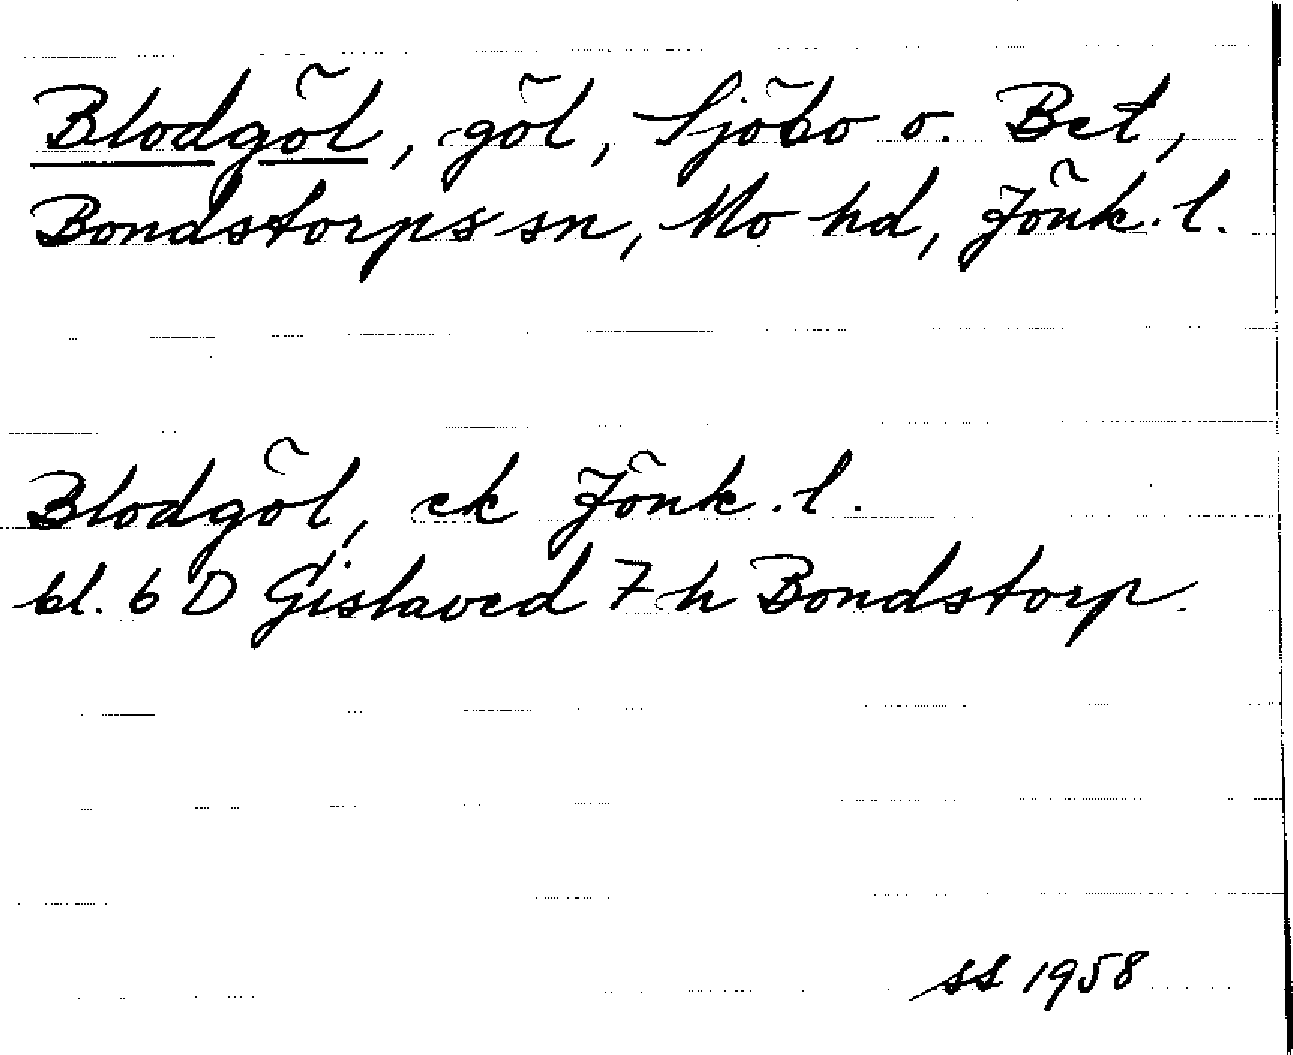 Blodgöl, göl, Sjöbo o. Bet,
Bondstorps sn, Mo hd, Jönk. l.
Blodgöl, ek Jönk. l.
bl. 6 D Gislaved 7 h Bondstorp.
ss 1958